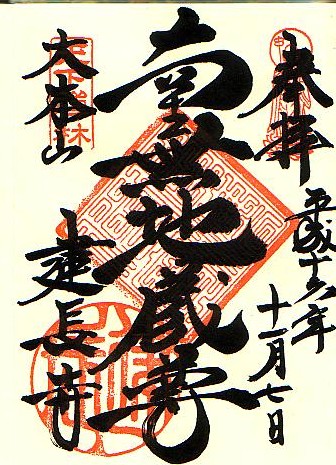 奉拝
平成十六年
十一月七日
南無地蔵尊
大本山
建長寺